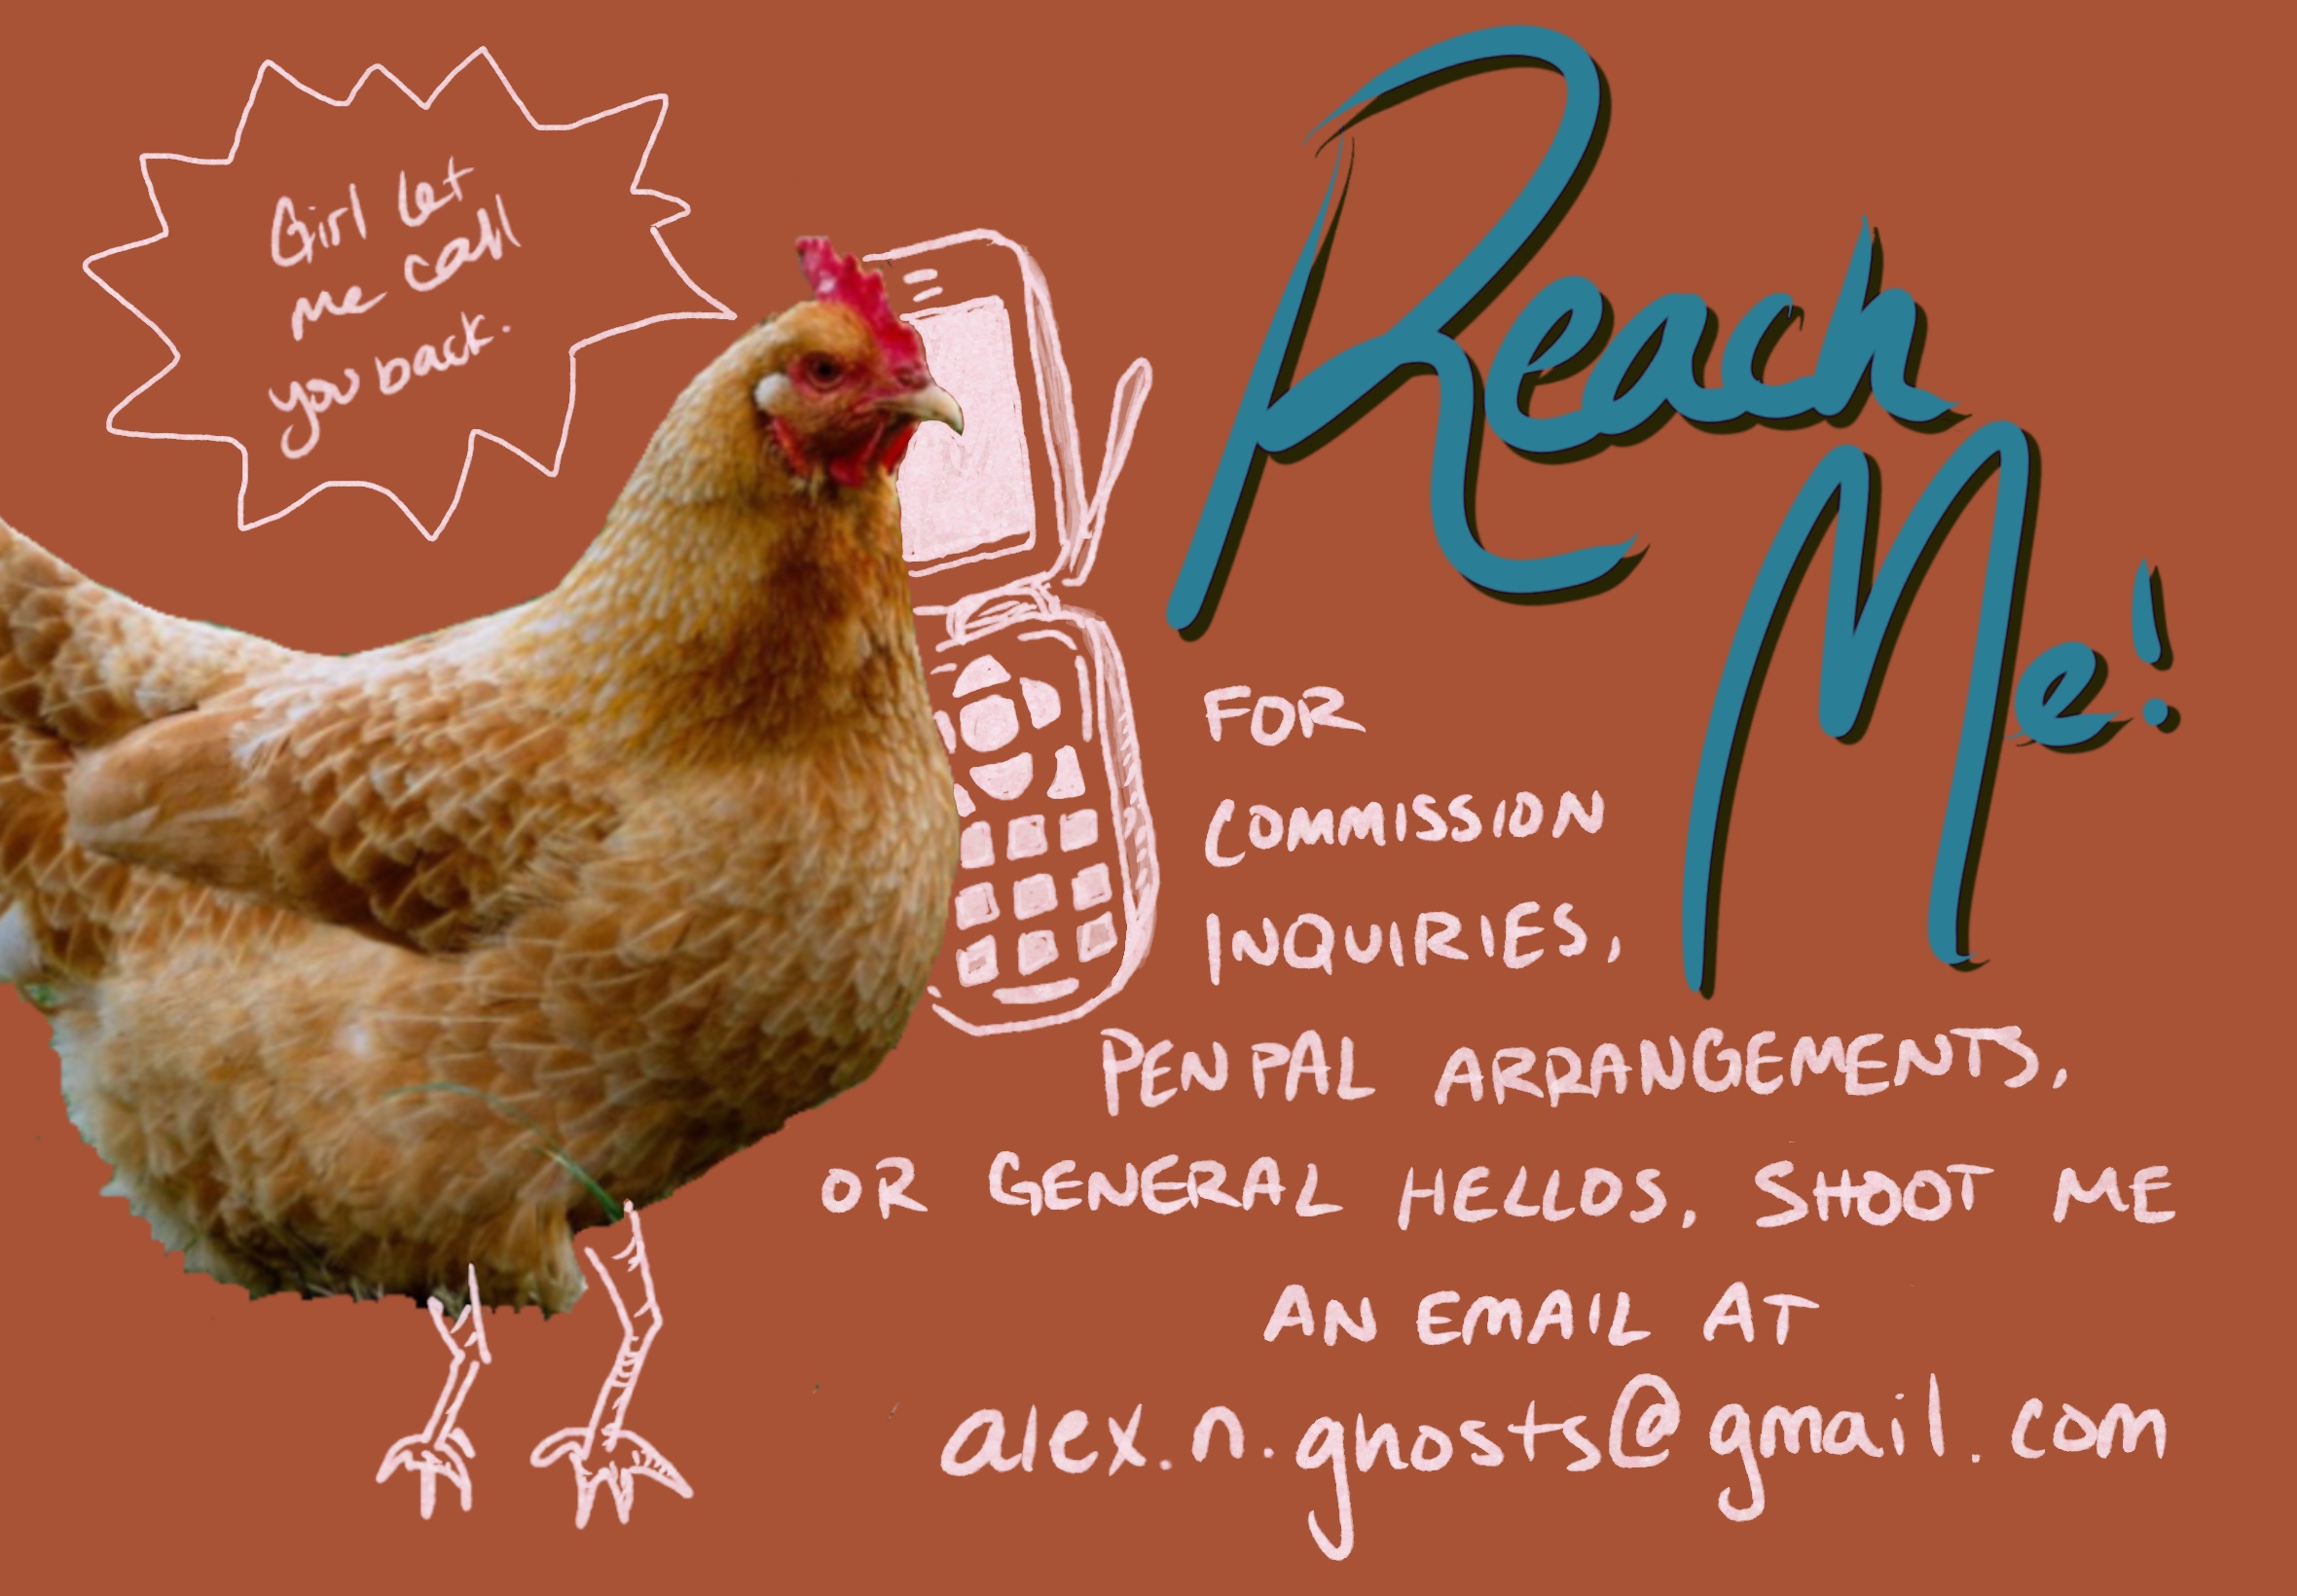 Girl let
me call
you back.
Reach
Me!
FOR
COMMISSION
INQUIRIES,
PEN PAL ARRANGEMENTS,
OR GENERAL HELLOS, SHOOT ME
AN EMAIL AT
alex.n.ghosts@gmail.com